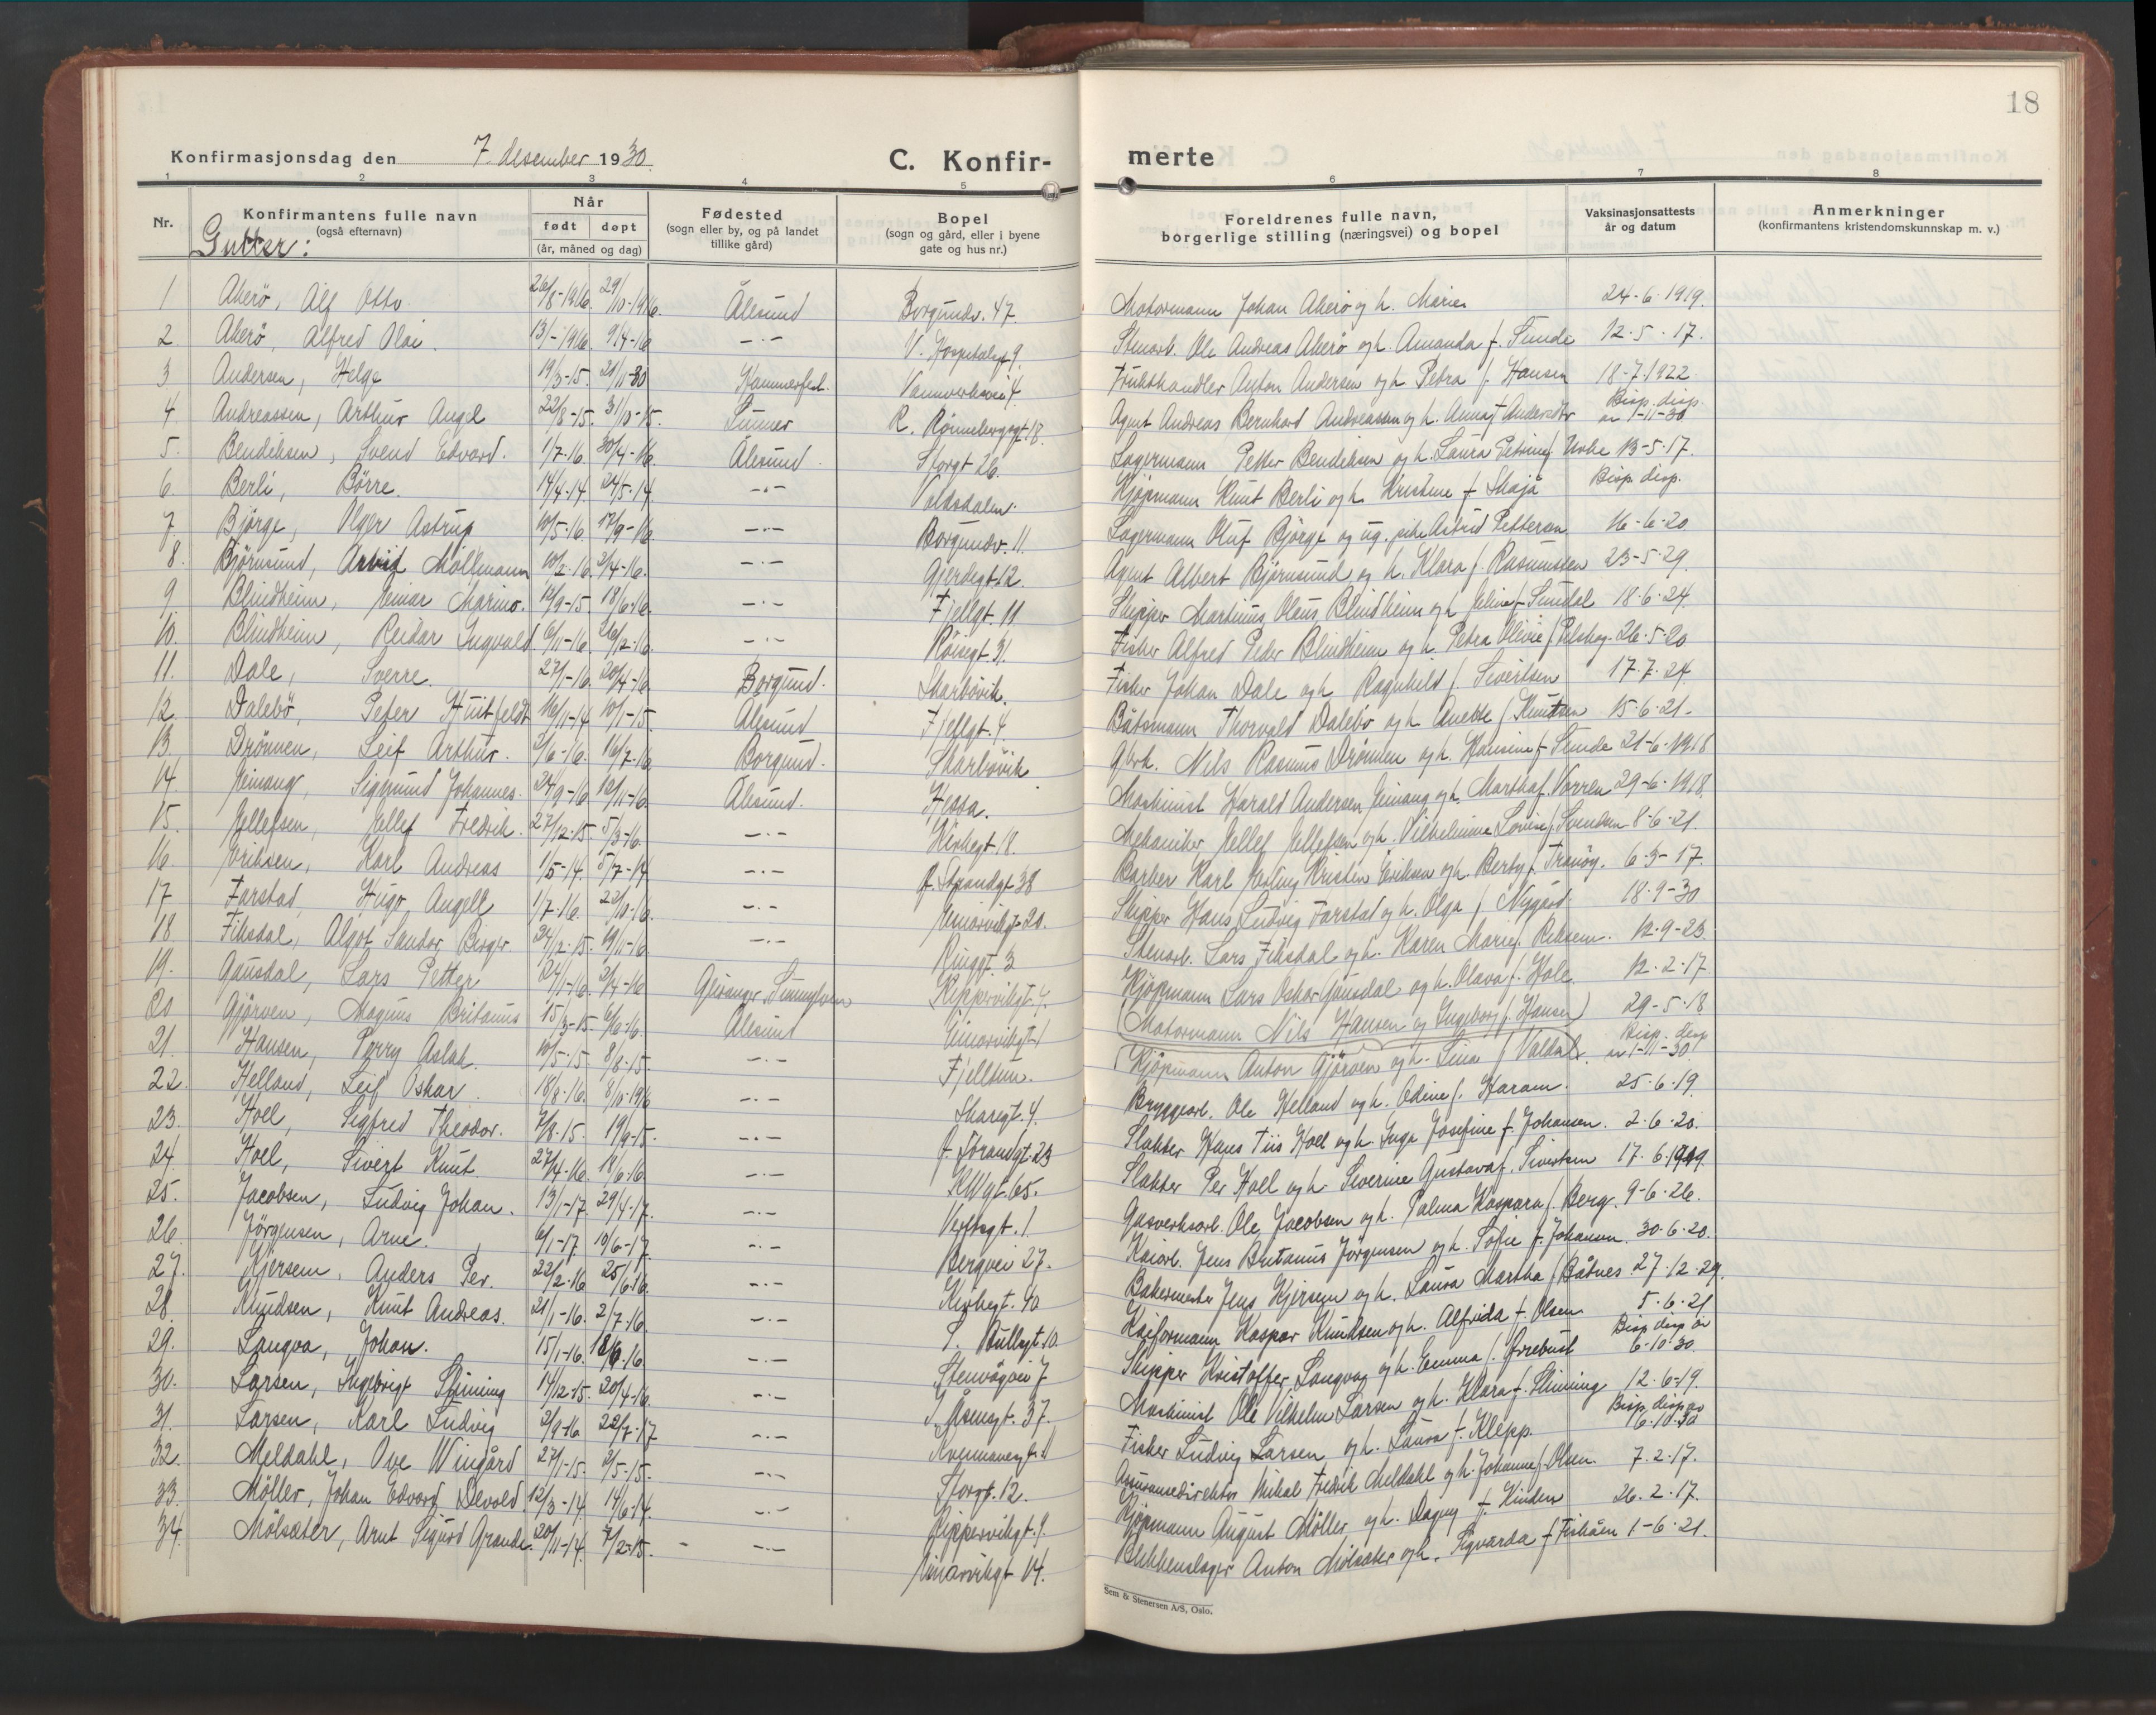 18
Konfirmasjonsdag den 7. desember 1930.
C. Konfir-
merte
1 2 3 4 5 6 7 8
Nr.
Konfirmantens fulle navn
(også efternavn)
Når
født døpt
(år, måned og dag)
Fødested
(sogn eller by, og på landet
tillike gård)
Bopel
(sogn og gård, eller i byene
gate og hus nr.)
Foreldrenes fulle navn,
borgerlige stilling (næringsvei) og bopel
Vaksinasjonsattests
år og datum
Anmerkninger
(konfirmantens kristendomskunnskap m. v.)
Gutter:
1 Akerö, Alf Otto 26/8-1916. 29/10-1916. Ålesund Borgundv. 47. Motormann Johan Akerö og h. Marie 24-6-1919.
2. Akerö, Alfred Olai. 13/1-1916. 9/4-16 -"- V. Hospitalsgt 9. Stenarb. Ole Andreas Akerö og h. Amanda f. Sunde 12-5-17.
3 Andersen, Helge 19/3-15. 21/11-30 Hammerfest. Frukthandler Anton Andersen og h. Petra f. Hansen 18-7-1922
4. Andreassen, Arthur Angel 22/8-15. 31/10-15. R. Rönnebergsgt. 18. Agent Andreas Bernhard Andreassen og h. Anna f. Bisp. disp. av 1-11-30
5. Bendiksen, Svend Edvard. 1/7-16. 30/4-16. Ålesund. Storgt 26. Lagermann Petter Bendiksen og h. Laura Petrine f. 13-5-17.
6. Berli, Börre. 14/4-14. 24/5-14 -"- Volsdalen. Kjöpmann Knut Berli og h. Kristine f. Bisp. disp.
7 Björge, Olger Astrup 10/5-16. 17/9-16 -"- Borgundv. 11. Lagermann Oluf Björge og ug. pike Astrid Pettersen 16-6-20
8. Björnsund, Arvid Möllmann 10/2-16. 2/4-16. -"- Gjerdegt. 12. Agent Albert Björnsund og h. Klara f. Rasmussen 23-5-29.
9 Blindheim, Einar Marino. 12/9-15. 18/6-16. -"- Fjellgt. 11 Skipper Martinus Olaus Blindheim og h. Eline f. Sundal 18-6-24.
10. Blindheim, Reidar Ingvald 6/11-16. 26/12-16. -"- Röisegt. 31. Fisker Alfred Peder Blindheim og h. Petra Olivie f. 26-5-20
11. Dale, Sverre. 27/1-16. 20/4-16 Borgund. Skarbövik. Fisker Johan Dale og h. Ragnhild f. Sivertsen 17-7-24
12. Dalebö, Peter Huitfeldt 16/11-14 10/1-15. Ålesund Fjellgt. 4. Båtsmann Thorvald Dalebö og h. Anette f. Knutsen 15-6-21.
13. Drönnen, Leif Arthur. 2/6-16. 16/7-16 Borgund. Skarbövik Nils Rasmus Drönnen og h. Hansine f. Sunde 21-6-1918
14. Eimang, Sigmund Johannes. 24/9-16 12/11-16. Ålesund. Hessa. Maskinist Harald Andersen Eimang og h. Martha f. Vorren 29-6-1918.
15. Ellefsen, Ellef Fredrik. 27/12-15. 5/3-16. -"- Kirkegt. 18. Mekaniker Ellef Ellefsen og h. Vilhelmine Lovise f. Svendsen 8-6-21.
16. Eriksen, Karl Andreas 1/5-14. 5/7-14 -"- N. Strandgt 38 Barber Karl Erling Kristen Eriksen og h. Berby f. Tranöy. 6-3-17.
17 Farstad, Hugo Angell 1/7-16. 22/10-16. -"- Einarvikgt. 20. Skipper Hans Ludvig Farstad og h. Olga f. Nygård 18-9-30
18. Fiksdal, Algot Sandor Berger 24/12-15. 19/11-16. -"- Ringgt. 3 Stenarb. Lars Fiksdal og h. Karen Marie f. 12-9-23.
19. Gausdal, Lars Petter 24/1-16. 2/4-16 Geiranger, Sunnylven Kippervikgt. 4. Kjöpmann Lars Oskar Gausdal og h. Olava f. Hole 12-2-17
20 Gjörven, Magnus Britanus 15/3-15. 6/6-16. Ålesund Einarvikgt. 1 (Motormann Nils Hansen og Ingeborg f. Hansen) 29-5-18
21. Hansen, Perry Aslak. 10/5-15. 8/8-15. -"- Fjelltun. (Kjöpmann Anton Gjörven og h. Lina f. Valdal. Bisp. disp. av 1-11-30.
22. Helland, Leif Oskar. 18/8-16. 8/10-1916 -"- Skaregt. 4. Bryggearb. Ole Helland og h. Odine f. Haram. 25-6-19.
23. Hoel, Sigfred Theodor. 7/8-15. 19/9-15. -"- N. Strandgt. 23 Slakter Hans Tiis Hoel og h. Inga Josefine f. Johansen. 2-6-20.
24. Hoel, Sivert Knut. 27/4-16. 18/6-16 -"- Slakter Per Hoel og h. Severine Gustava f. Sivertsen 17-6-1919.
25. Jacobsen, Ludvig Johan. 13/1-17. 29/4-17. -"- Verftsgt. 1. Gasverksarb. Ole Jacobsen og h. Palma Kaspara f. Berg. 9-6-26.
26. Jörgensen, Arne. 6/1-17 10/6-17. -"- Bergvei 27. Kaiarb. Jens Britanus Jörgensen og h. Sofie f. Johansen. 30-6-20.
27. Kjersem, Anders Per. 22/2-16 25/6-16. -"- Kirkegt. 40 Bakermester Jens Kjersem og h. Laura Martha f. Båtnes. 27-12-29.
28. Knudsen, Knut Andreas. 21/1-16. 2/7-16. -"- Kaiformann Kaspar Knudsen og h. Alfrida f. Olsen 5-6-21
29. Langva, Johan. 15/1-16. 18/6-16 -"- Stenvågvei 7 Skipper Kristoffer Langva og h. Emma f. Bisp. disp. av 6-10-30.
30. Larsen, Ingebrigt Slinning 14/12-15. 20/4-16. -"- 37. Maskinist Ole Vilhelm Larsen og h. Klara f. Slinning 12-6-19.
31. Larsen, Karl Ludvig 2/9-16. 22/7-17 -"- Fisker Ludvig Larsen og h. Laura f. Klepp. Bisp. disp. av 6-10-30
32. Meldahl, Ove Wingård 27/1-15. 2/5-15. -"- Storgt. 12. Assuransedirektör Mikal Fredrik Meldahl og h. Johanne f. Olsen. 7-2-17.
33. Möller, Johan Edvard Devold 12/3-14. 14/6-14. -"- Kippervikgt. 9. Kjöpmann August Möller og h. Dagny f. Kinden 26-2-17.
34. Mölsæter, Arnt Sigurd Grande. 20/11-14. 7/2-15. -"- Einarvikgt. 14. Blikkenslager Anton Mölsæter og h. Sigvarda f. Fiskåen 1-6-21.
Sem & Stenersen A/S, Oslo.